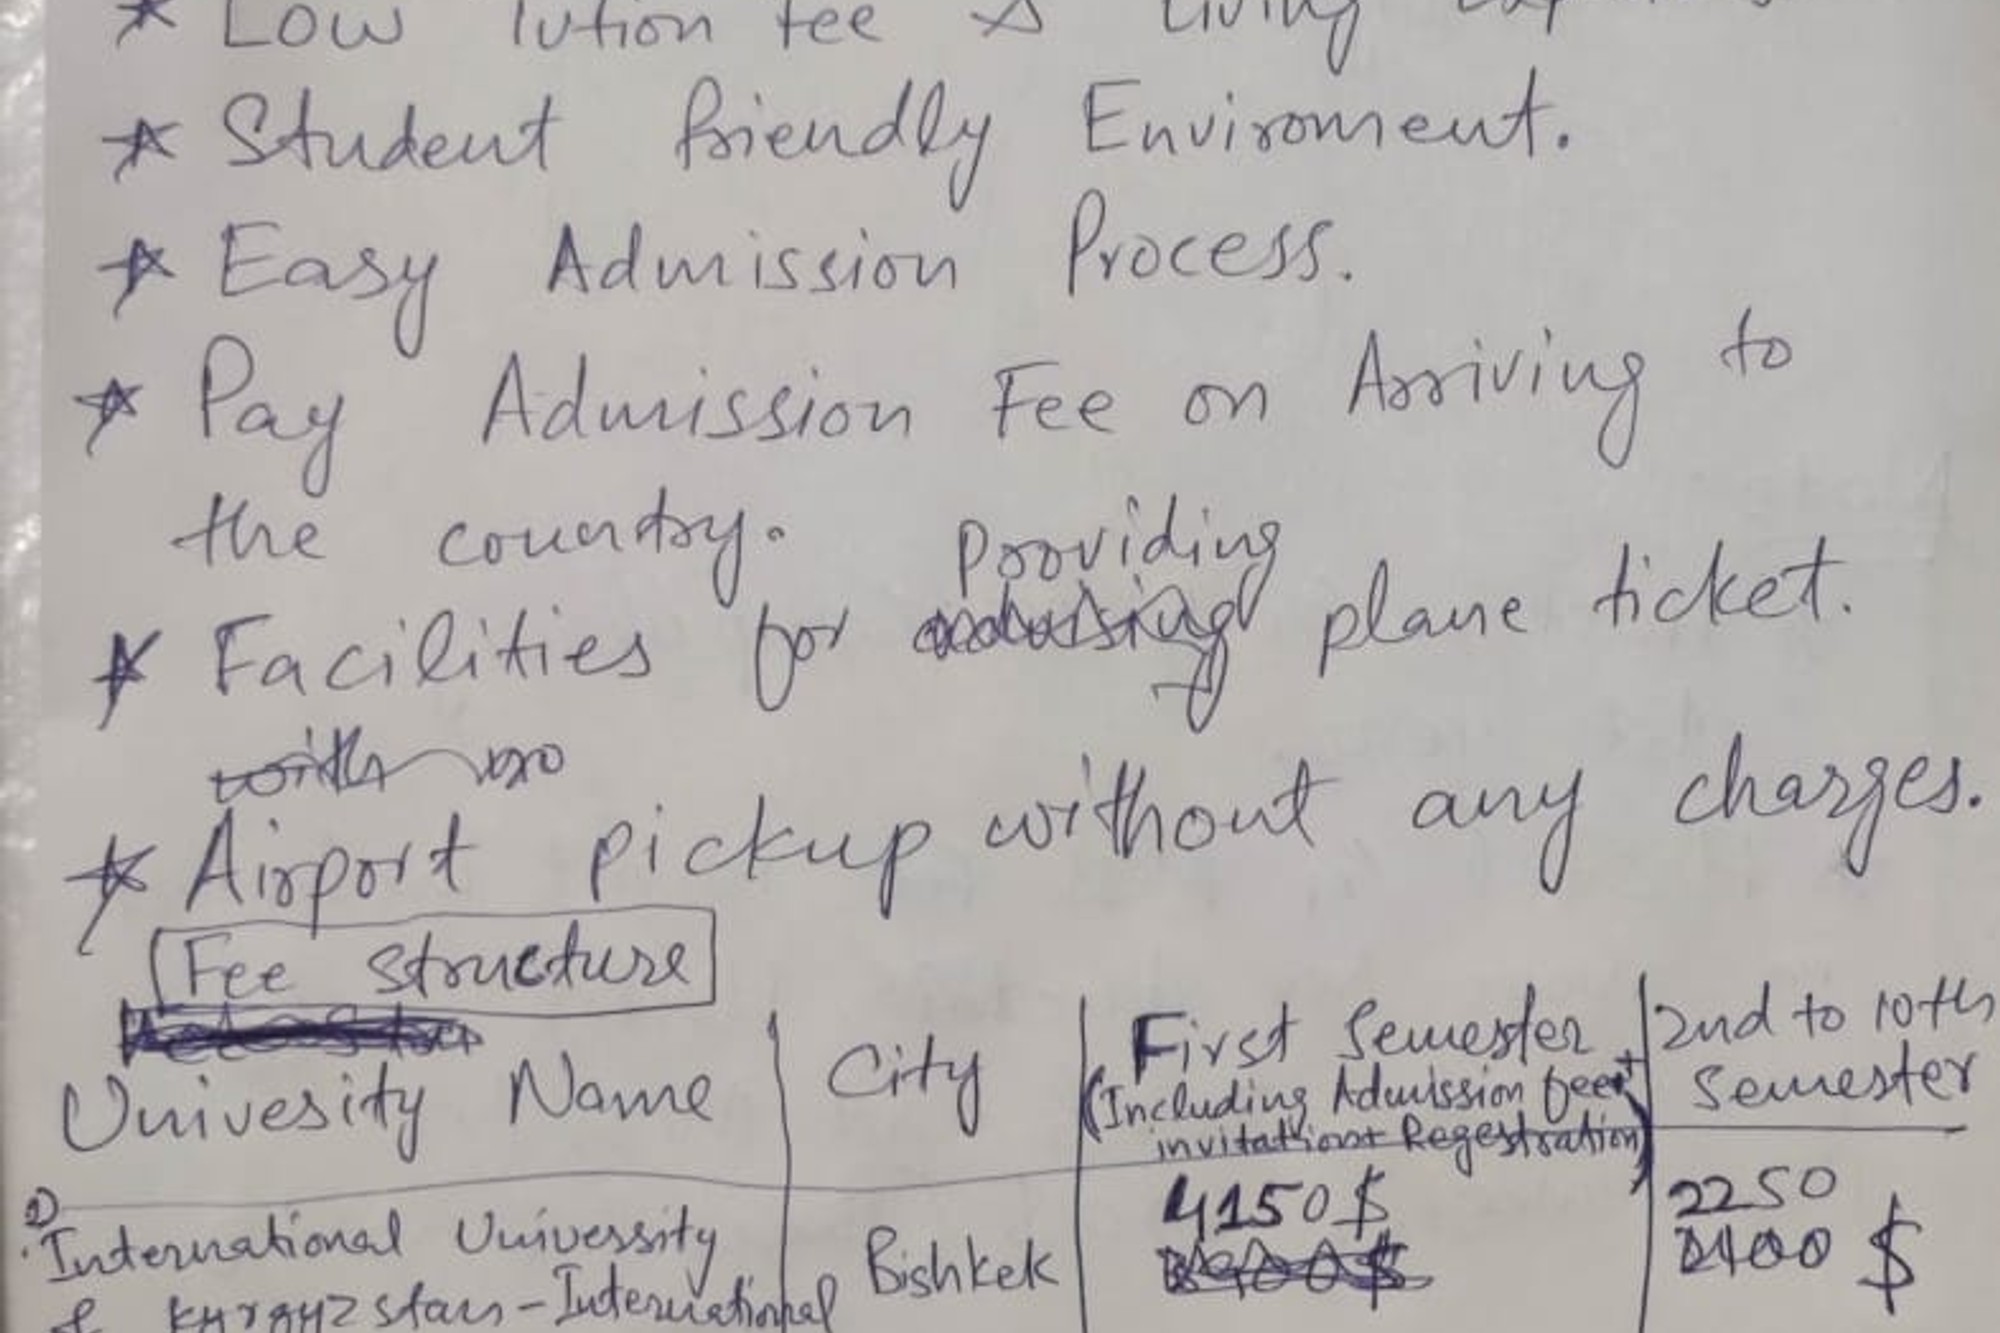 * Low Tution fee & Living
* Student friendly Enviroment.
* Easy Admission Process.
* Pay Admission Fee on Arriving to
the country.
* Facilities for providing plane ticket.
with no
* Airport pickup without any charges.
Fee structure
University Name | City | First Semester (Including Admission fee + invitation + Regestration) | 2nd to 10th Semester
1) International University | Bishkek | 4150$ | 2250 2400 $
of Kyrgyzstan-International